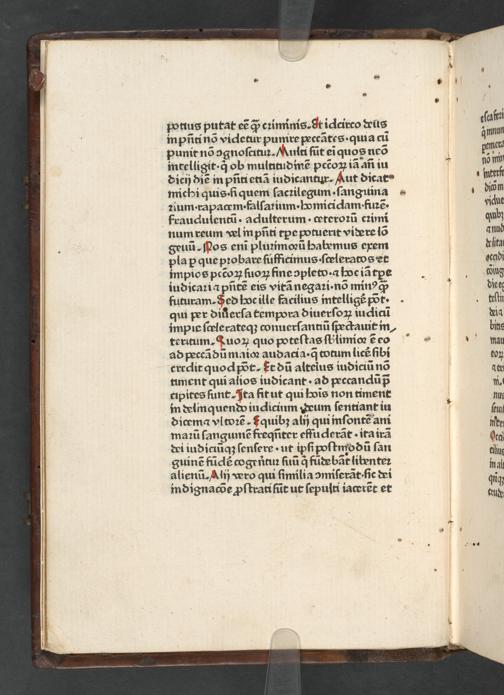 potius putat eē q̄ꝫ criminis. Et idcirco deus
in p̄nti nō videtur punire peccātes. quia cū
punit nō ɔgnoscitur. Multi sūt em̄ quos nōn
intelligit. q̄ ob multitudinē pccōꝝ iā añ iu
dicij diē in p̄nti etiā iudicantur. Aut dicat
michi quis. si quem sacrilegum. sanguina
rium. rapacem. falsarium. homicidam. furē.
fraudulentū. adulterum. ceterorū crimi
num reum vel in p̄nti tp̄e potuerit videre lō
geuū. Nos eni plurimorū habemus exem
pla p que probare sufficimus. sceleratos et
impios pccōꝝ suoꝝ fine ɔpleto. ⁊ hoc iā tp̄e
iudicari ⁊ p̄nte eis vitā negari. nō minꝰ q̄ꝫ
futuram. Sed hoc ille facilius intelligē pōt.
qui per diuersa tempora diuersoꝝ iudicū
impie scelerateqꝫ conuersantiū spectauit in
teritum. Quoꝝ quo potestas sblimior ē eo
ad peccādū maior audacia. q̄ totum licē sibi
credit quod pōt. Et dū alterius iudiciū nō
timent qui alios iudicant. ad peccandū p̄
cipites sunt. Ita fit ut qui hoīs non timent
in delinquendo iudicium. deum sentiant iu
dicem ⁊ vltorē. Equibꝫ alij qui insontē ani
marū sanguinē freqn̄ter effuderāt. ita irā
dei iudiciūqꝫ sensere. ut ipsi postmodū san
guinē fūdē cogerētur suū q̄ fūdebāt libenter
alienū. Alij vero qui similia ɔmiserāt. sic dei
indignacōe ꝓstrati sūt ut sepulti iacerēt et